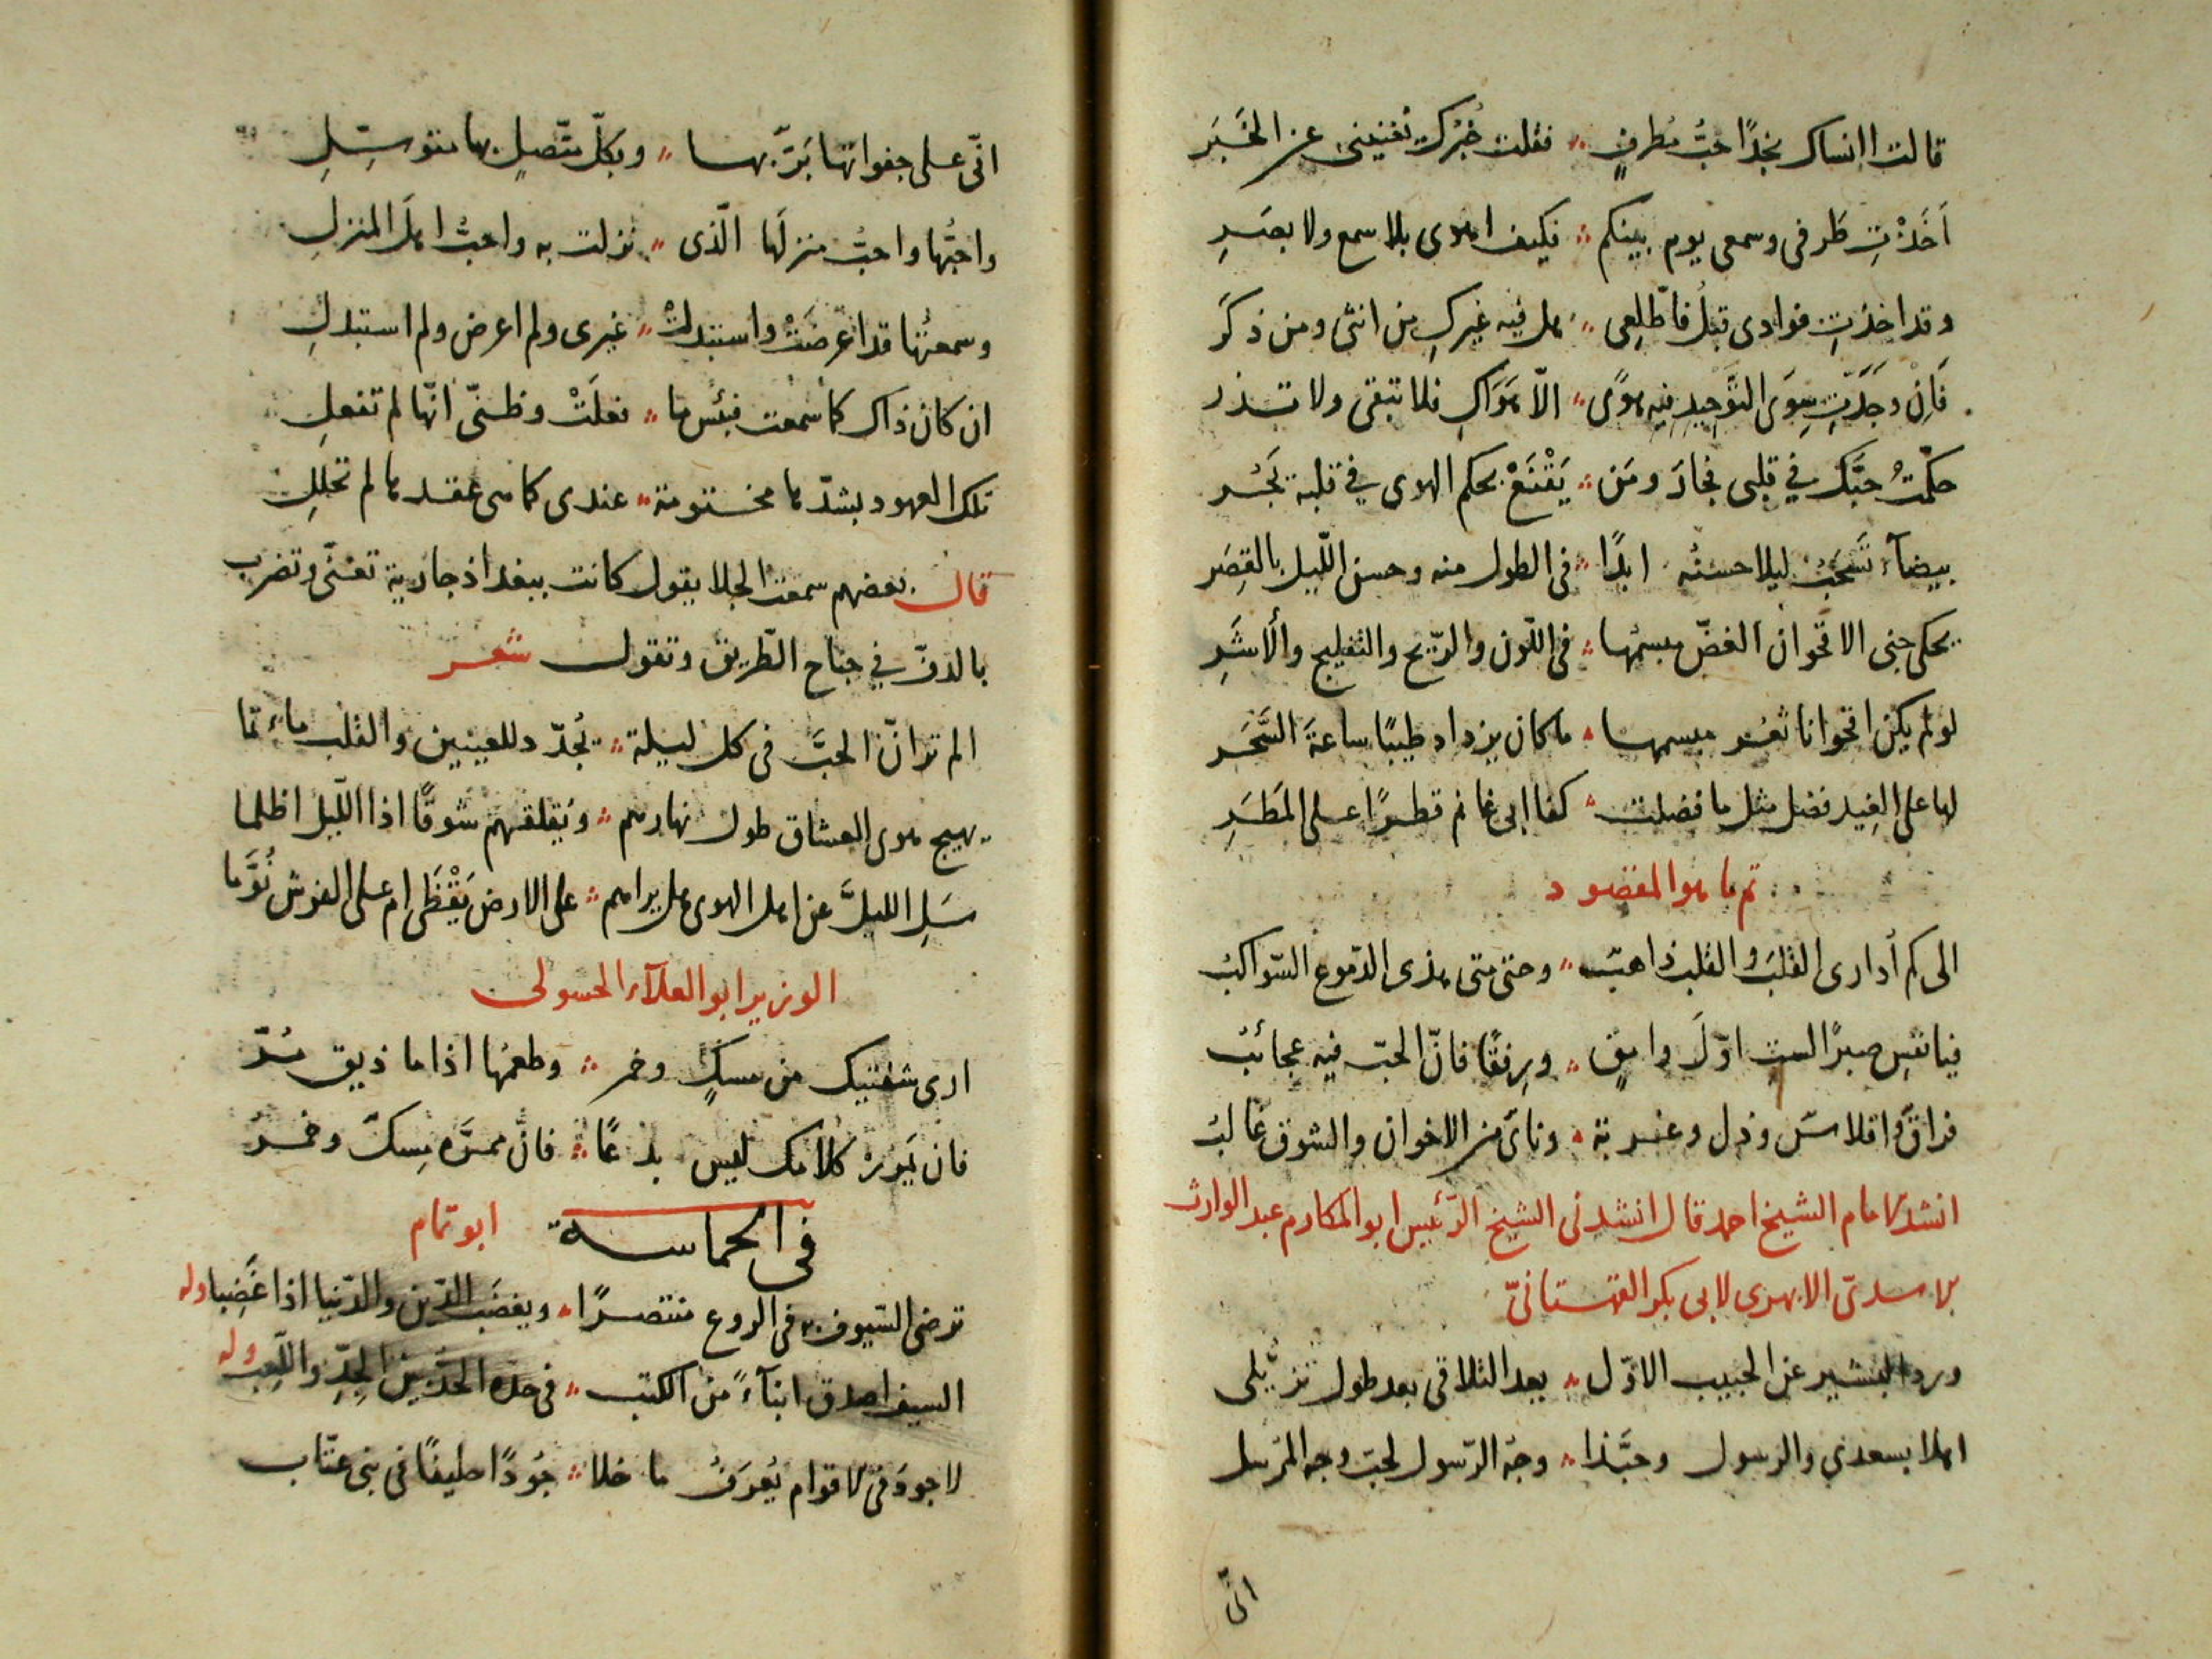 قالت اانساك نجدًا حبُّ مُطرفٍ فقلت خُبْركِ تغنينى عن الخَبَر
اَخَذْتِ طَرفى وسمعى يوم بينكم فكيف اهوى بلا سمع ولا بصَرِ
وقد اخذتِ فوادى قبلُ فاطّلعِى هل فيه غيركِ من انثى ومن ذكَرَ
فَاِنْ وجَدَتِّ سِوَى التَّوحيدِ فيه هوًى الّا هَوَاكِ فلا تبقى ولا تذر
حكّمتُ حبَّك في قلبى فجارَ ومَن يَقْنَعْ بحكم الهوى في قلبه يَجُر
بيضآء تَسْحَبُ ليلا حسنُه ابدًا فى الطول منه وحسن اللّيل بالقِصَر
يحكى جنى الاقحوان الغضّ مبسمُها فى اللّون والرّيح والتفليج والأشَرِ
لو لم يكن اقحوانا ثغر مبسمها ما كان يزداد طيبًا ساعةَ السَّحَر
لها على الغِيد فضل مثل ما فضلت كفا ابى غانم قطرًا على المَطَرِ
تم ما هو المقصود
الى كم أدارى القلبَ والقلب ذاهبٌ وحتى متى هذى الدّموع السّواكبُ
فيا نفسِ صبرًا لستِ اوّلَ وامقٍ ورِفقًا فانّ الحبّ فيه عجائبُ
فراقٌ وافلاسٌ وذل وغربة ونائ من الاخوان والشوق غالبُ
انشد الامام الشيخ احمد قال انشدنى الشيخ الرّئيس ابو المكارم عبد الوارث
الاسدىّ الابهرى لابى بكر القهستانىّ
ورد البشير عن الحبيب الاوّل بعد التلاقى بعد طول تزيُّلى
اهلا بسعدي والرسول وحبَّذا وجهُ الرّسول لحبّ وجه المُرسل
انّى
انّى على جفواتها بَرٌّ بها وبكلّ متّصلٍ بها متوسّلِ
واحبُّها واحبُّ منزلَها الّذى نزلت به واحبّ اهلَ المنزلِ
وسمعتُها قد اعرضَتْ واستبدلتْ غيرى ولم اعرض ولم استبدلِ
ان كان ذاك كما سمعت فبِئس ما فعلَتْ وظنىّ انّها لم تفعلِ
تلك العهود بشدّها مختومة عندى كما هى عقدها لم تحللِ
قال بعضهم سمعت الجلا يقول كانت ببغداذ جارية تغنّى وتضرب
بالدفّ في جناح الطّريق وتقول شعر
الم تر انّ الحبَّ فى كل ليلة يُجدّد للعينين والقلب ماءتما
يهيج هوى العشاق طول نهارهم ويُقلقهم شوقًا اذا اللّيل اظلما
سَلِ الليلَ عن اهل الهوى هل يراهم على الارض يَقْظَى ام على الفرش نُوَّما
الوزير ابو العلآء الحسولى
ارى شفتيك من مسكٍ وخمر وطعمُها اذا ما ذيق مُرّ
فان يَمرُرْ كلامك ليس بدعًا فانّ ممرَّه مِسكٌ وخمرُ
فى الحماسة ابو تمام
ترضى السّيوف به فى الروع منتصرًا ويغضب الدّين والدّنيا اذا غَضِبا وله
السيف اصدق انبآءً من الكتب فى حدّه الحدّ بين الجِدِّ واللّعِب وله
لا جودَ فى الاقوام يُعرَفُ ما خلا جُودًا حليفًا فى بنى عتّاب